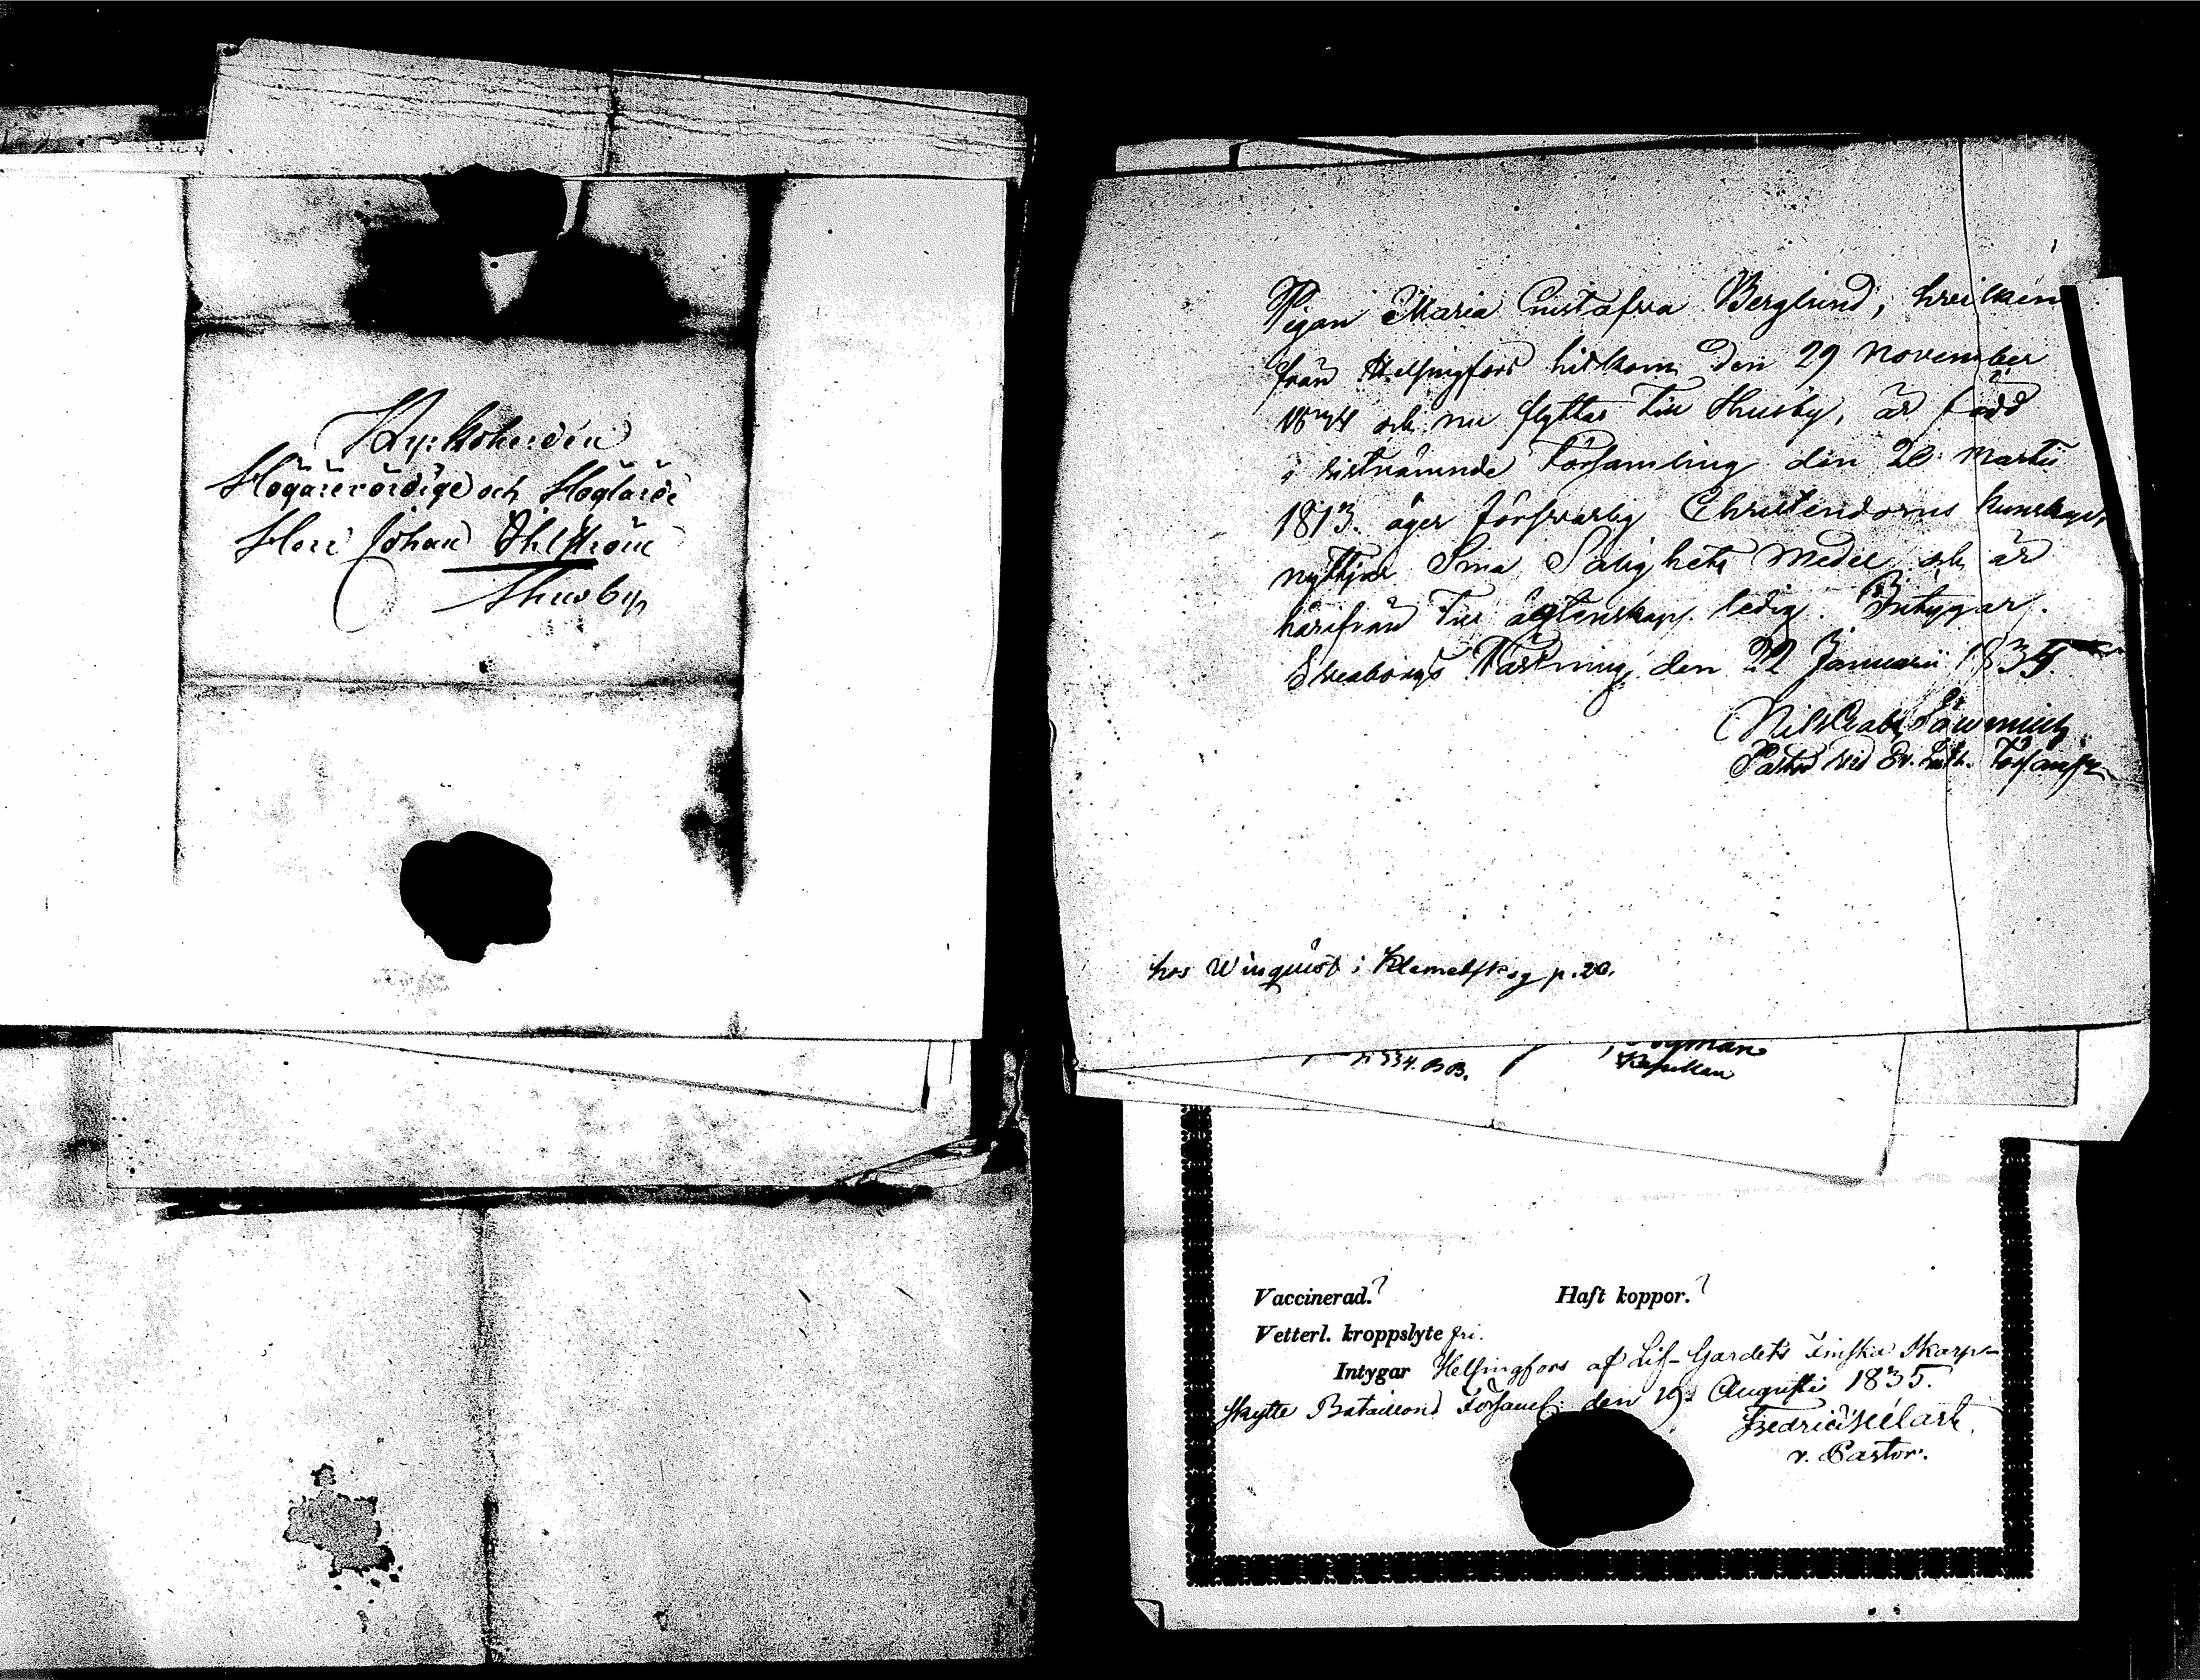 Kyrkoherden
Högärevördige och Höglärde
Herr Johan Öhlström
Thusby
Pigan Maria Gustafva Berglund, hvilken
från Helsingfors hitkom den 29 November
och nu flyttar till Thusby, är född
i sistnämnde Församling den 20 Martii
1813. äger försvarlig Christendoms kunskap,
nyttjar Sina Salighets medel och är
härifrån till ägtenskap ledig. Intygar.
Sveaborgs Fästning den 22 Januarii 1835.
Pastor vid Ev. Luth. Församl.
hos Winquist i Klemetskog p. 20.
334. BB.
Kapellan
Vaccinerad.? Haft koppor.?
Vetterl. kroppslyte fri.
Intygar Helsingfors af Lif-Gardets Finska Skarp-
skytte Bataillons Församl. den 19 Augusti 1835.
Fredric
v. Pastor.